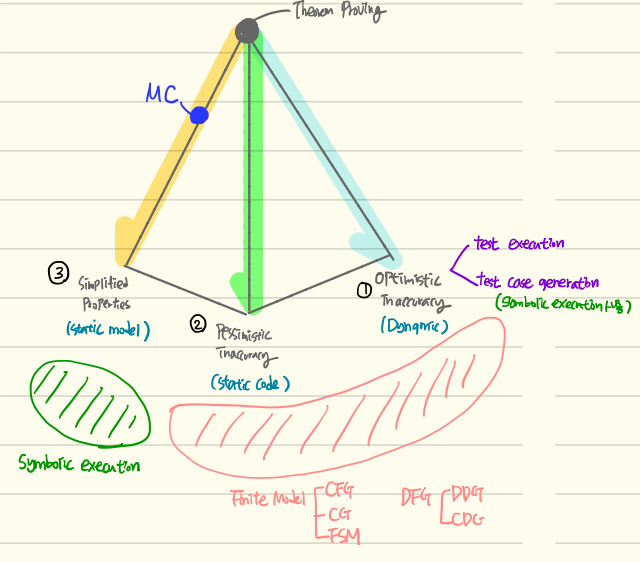 Theorem Proving
MC
③ Simplified
Properties
(static model)
② Pessimistic
Inaccuracy
(static code)
① Optimistic
Inaccuracy
(Dynamic)
test execution
test case generation
(Symbolic execution 사용)
Symbolic execution
Finite Model
CFG
CG
FSM
DFG
DDG
CDG